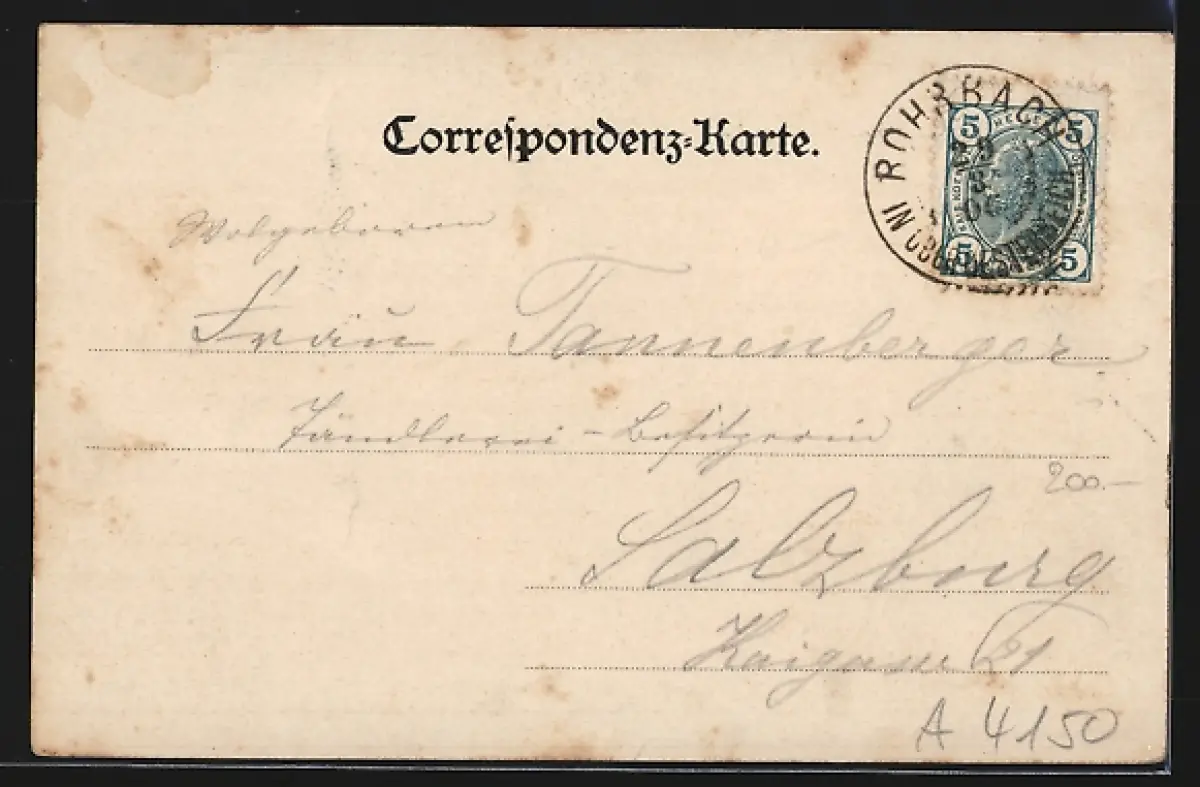 Correspondenz-Karte.
ROHRBACH
IN OBEROESTERREICH
5 5
5 5
Wolgeboren
Frau Tannenberger
Besitzerin
200.-
Salzburg
Kaigasse 21
A 4150